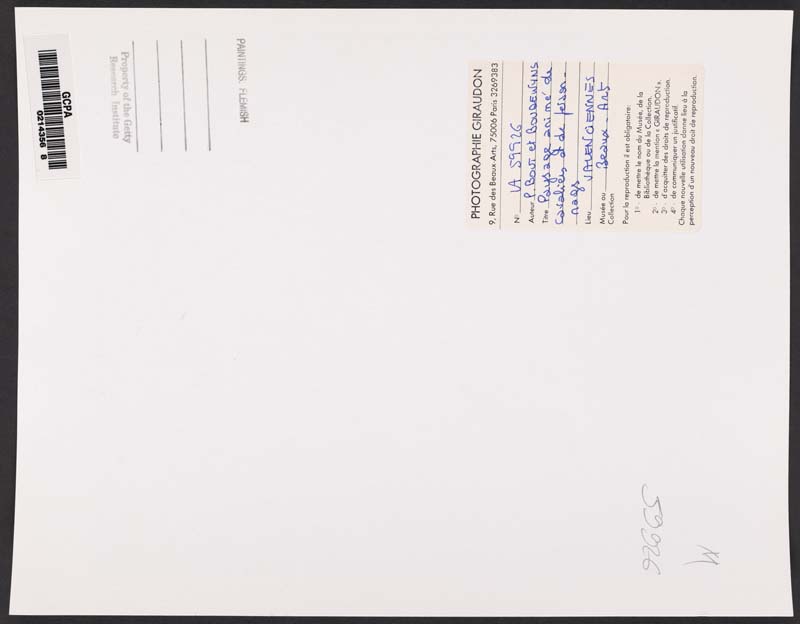 GCPA
0214356 8
Property of the Getty
Research Institute
PAINTINGS: FLEMISH
PHOTOGRAPHIE GIRAUDON
9, Rue des Beaux Arts, 75006 Paris 3269383
N° LA 59926
Auteur P. BOUT et BOUDEWYNS
Titre Paysage animé de
Cavaliers et de person-
nages
Lieu VALENCIENNES
Musée ou Beaux-Arts
Collection
Pour la reproduction il est obligatoire:
1° - de mettre le nom du Musée, de la
Bibliothèque ou de la Collection.
2° - de mettre la mention « GIRAUDON ».
3° - d'acquitter des droits de reproduction.
4° - de communiquer un justificatif.
Chaque nouvelle utilisation donne lieu à la
perception d'un nouveau droit de reproduction.
59926